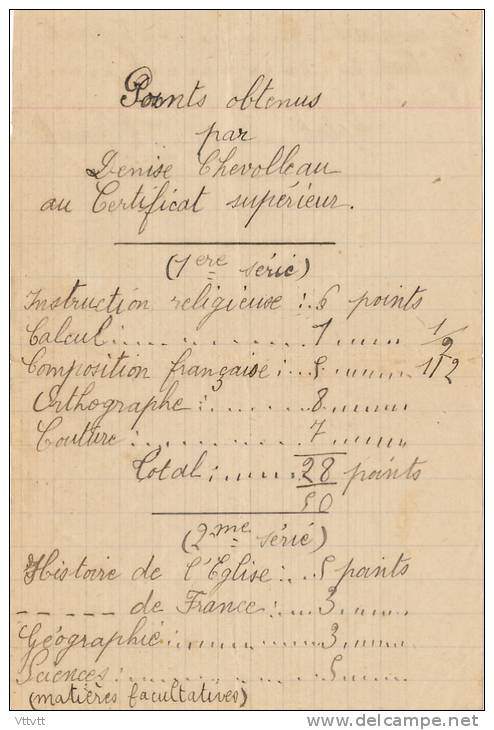 Points obtenus
par
Denise Chevolleau
au Certificat supérieur.
(1ere série)
Instruction religieuse : . 6 points
Calcul : . . . . . . . . . . . 1 . . . . . . 1/2
Composition française : . 5 . . . . . . . 1/2
Orthographe : . . . . . . 8 . . . . . .
Couture : . . . . . . . . . . 7 . . . . . .
Total : . . . . . 28 points
50
(2me série)
Histoire de l'Eglise : . . 5 points
_ _ _ _ _ de France : . . . 3 . . . . . .
Géographie : . . . . . . . . . . . 3 . . . . . .
Sciences : . . . . . . . . . . . . . 5 . . . . . .
(matières facultatives)
Vttvtt